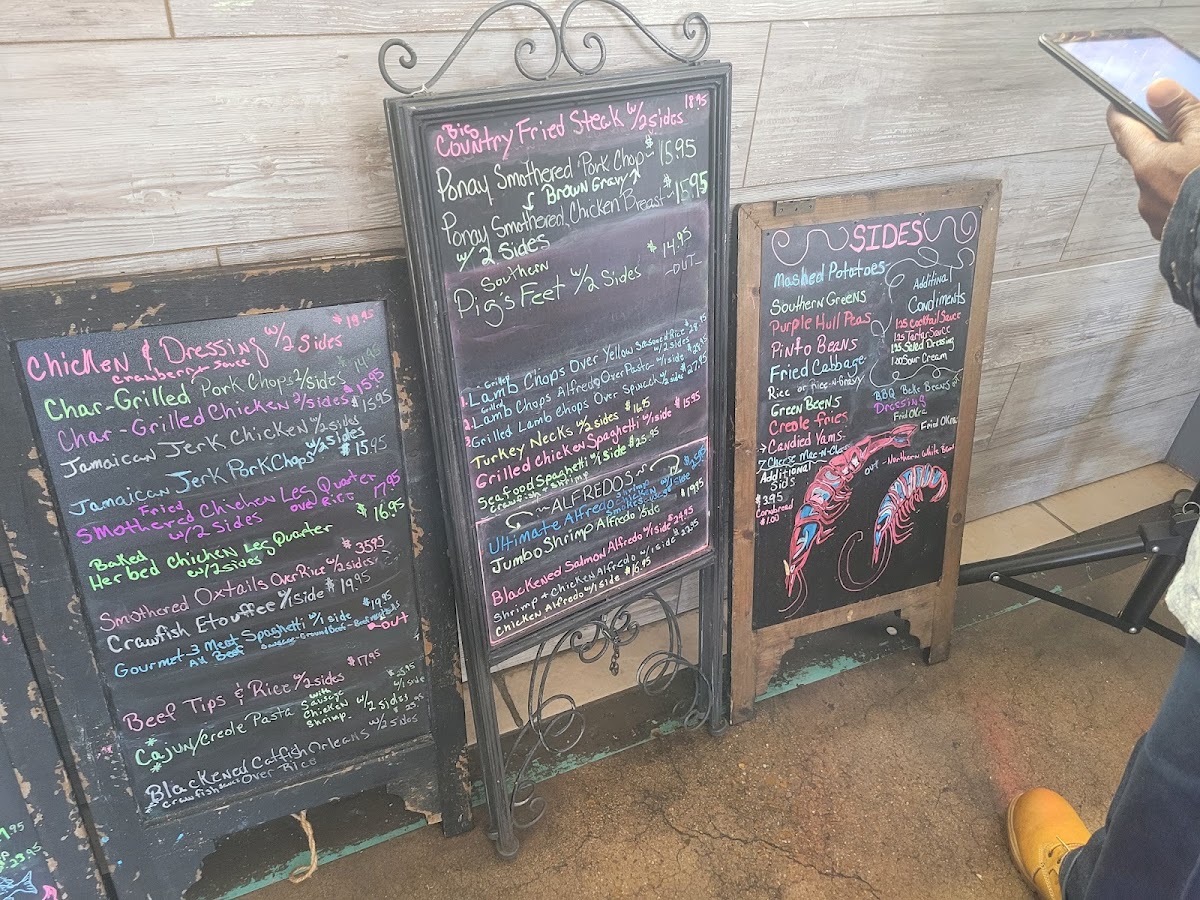 Chicken & Dressing w/2 Sides $19.95
Cranberry Sauce
Char-Grilled Pork Chops 2/Sides $14.95
Char-Grilled Chicken 2/sides $15.95
Jamaican Jerk Chicken w/2 sides $15.95
Jamaican Jerk Pork Chops w/2 sides $15.95
Smothered Fried Chicken Leg Quarter 17.95
w/2 Sides over Rice
Baked Herbed Chicken Leg Quarter $16.95
w/2 sides
Smothered Oxtails Over Rice w/2 sides $35.95
Crawfish Etouffee w/1 side $19.95
Gourmet 3 Meat Spaghetti w/1 side $19.95
All Beef
-OUT
Beef Tips & Rice w/2 sides $17.95
Cajun/Creole Pasta with
Sausage
Chicken
Shrimp w/2 sides
w/1 side
Blackened Catfish Orleans w/2 sides
Crawfish Sauce Over Rice
Big
Country Fried Steak w/2 sides 18.95
Ponay Smothered Pork Chop $15.95
& Brown Gravy
Ponay Smothered Chicken Breast $15.95
w/2 Sides
Southern
Pig's Feet w/2 Sides $14.95
-OUT-
1. Grilled Lamb Chops Over Yellow Seasoned Rice $28.95
w/2 sides
2. Grilled Lamb Chops Alfredo Over Pasta w/1 side
3 Grilled Lamb Chops Over Spinach w/2 sides $27.95
Turkey Necks w/2 sides $16.95
Grilled Chicken Spaghetti w/1 side $15.95
Seafood Spaghetti w/1 Side $25.95
Crawfish - Shrimp
~ALFREDOS~
Ultimate Alfredo Shrimp
Chicken
Jumbo Shrimp Alfredo 1 side $19.95
Blackened Salmon Alfredo w/1 side $24.95
Shrimp & Chicken Alfredo w/1 side $22.95
Chicken Alfredo w/1 side $16.95
SIDES
Mashed Potatoes
Southern Greens
Purple Hull Peas
Pinto Beans
Fried Cabbage
Rice or Rice-N-Gravy
Green Beans
Creole Fries
Candied Yams
7 Cheese Mac-N-Chz
Additional
Sids
$3.95
Cornbread
$1.00
Additinal
Condiments
1.25 Cocktail Sauce
1.25 Tartar Sauce
1.25 Salad Dressing
1.00 Sour Cream
BBQ Bake Beans
Dressing
Frid Okra
Frid Okra
OUT - Northern White Bean